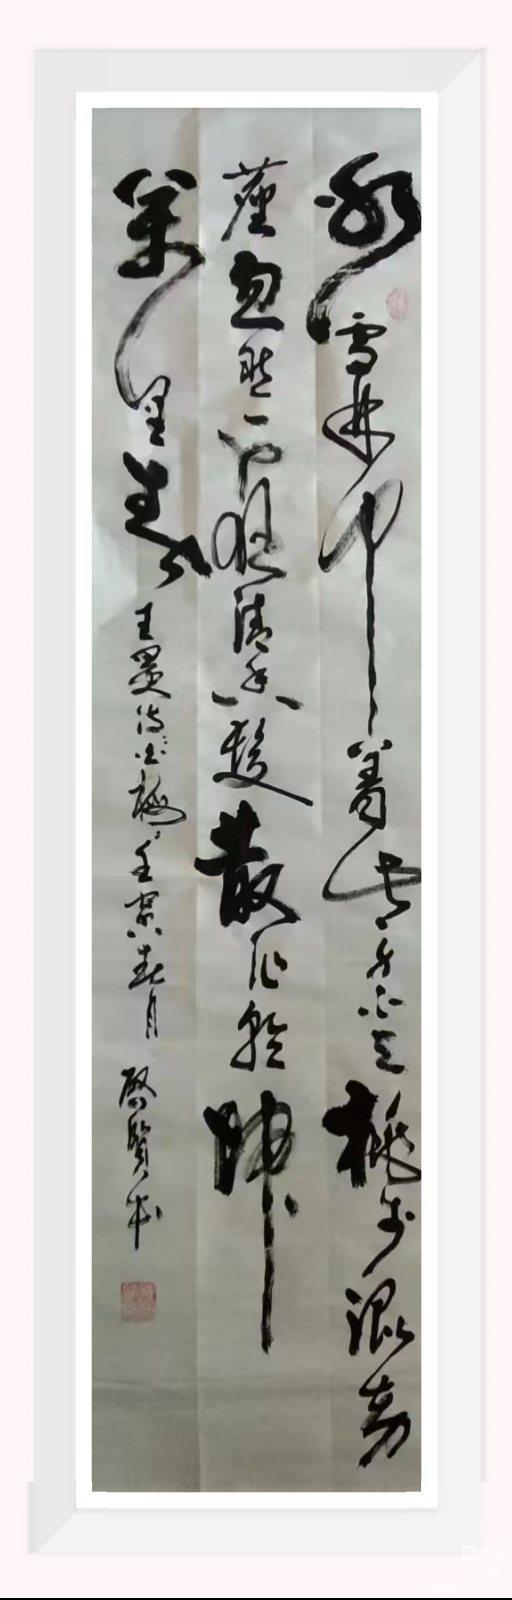 冰雪林中著此身不同桃李混芳
塵忽然一夜清香發散作乾坤
萬里春 王冕詩白梅 壬寅春月 啟賢書